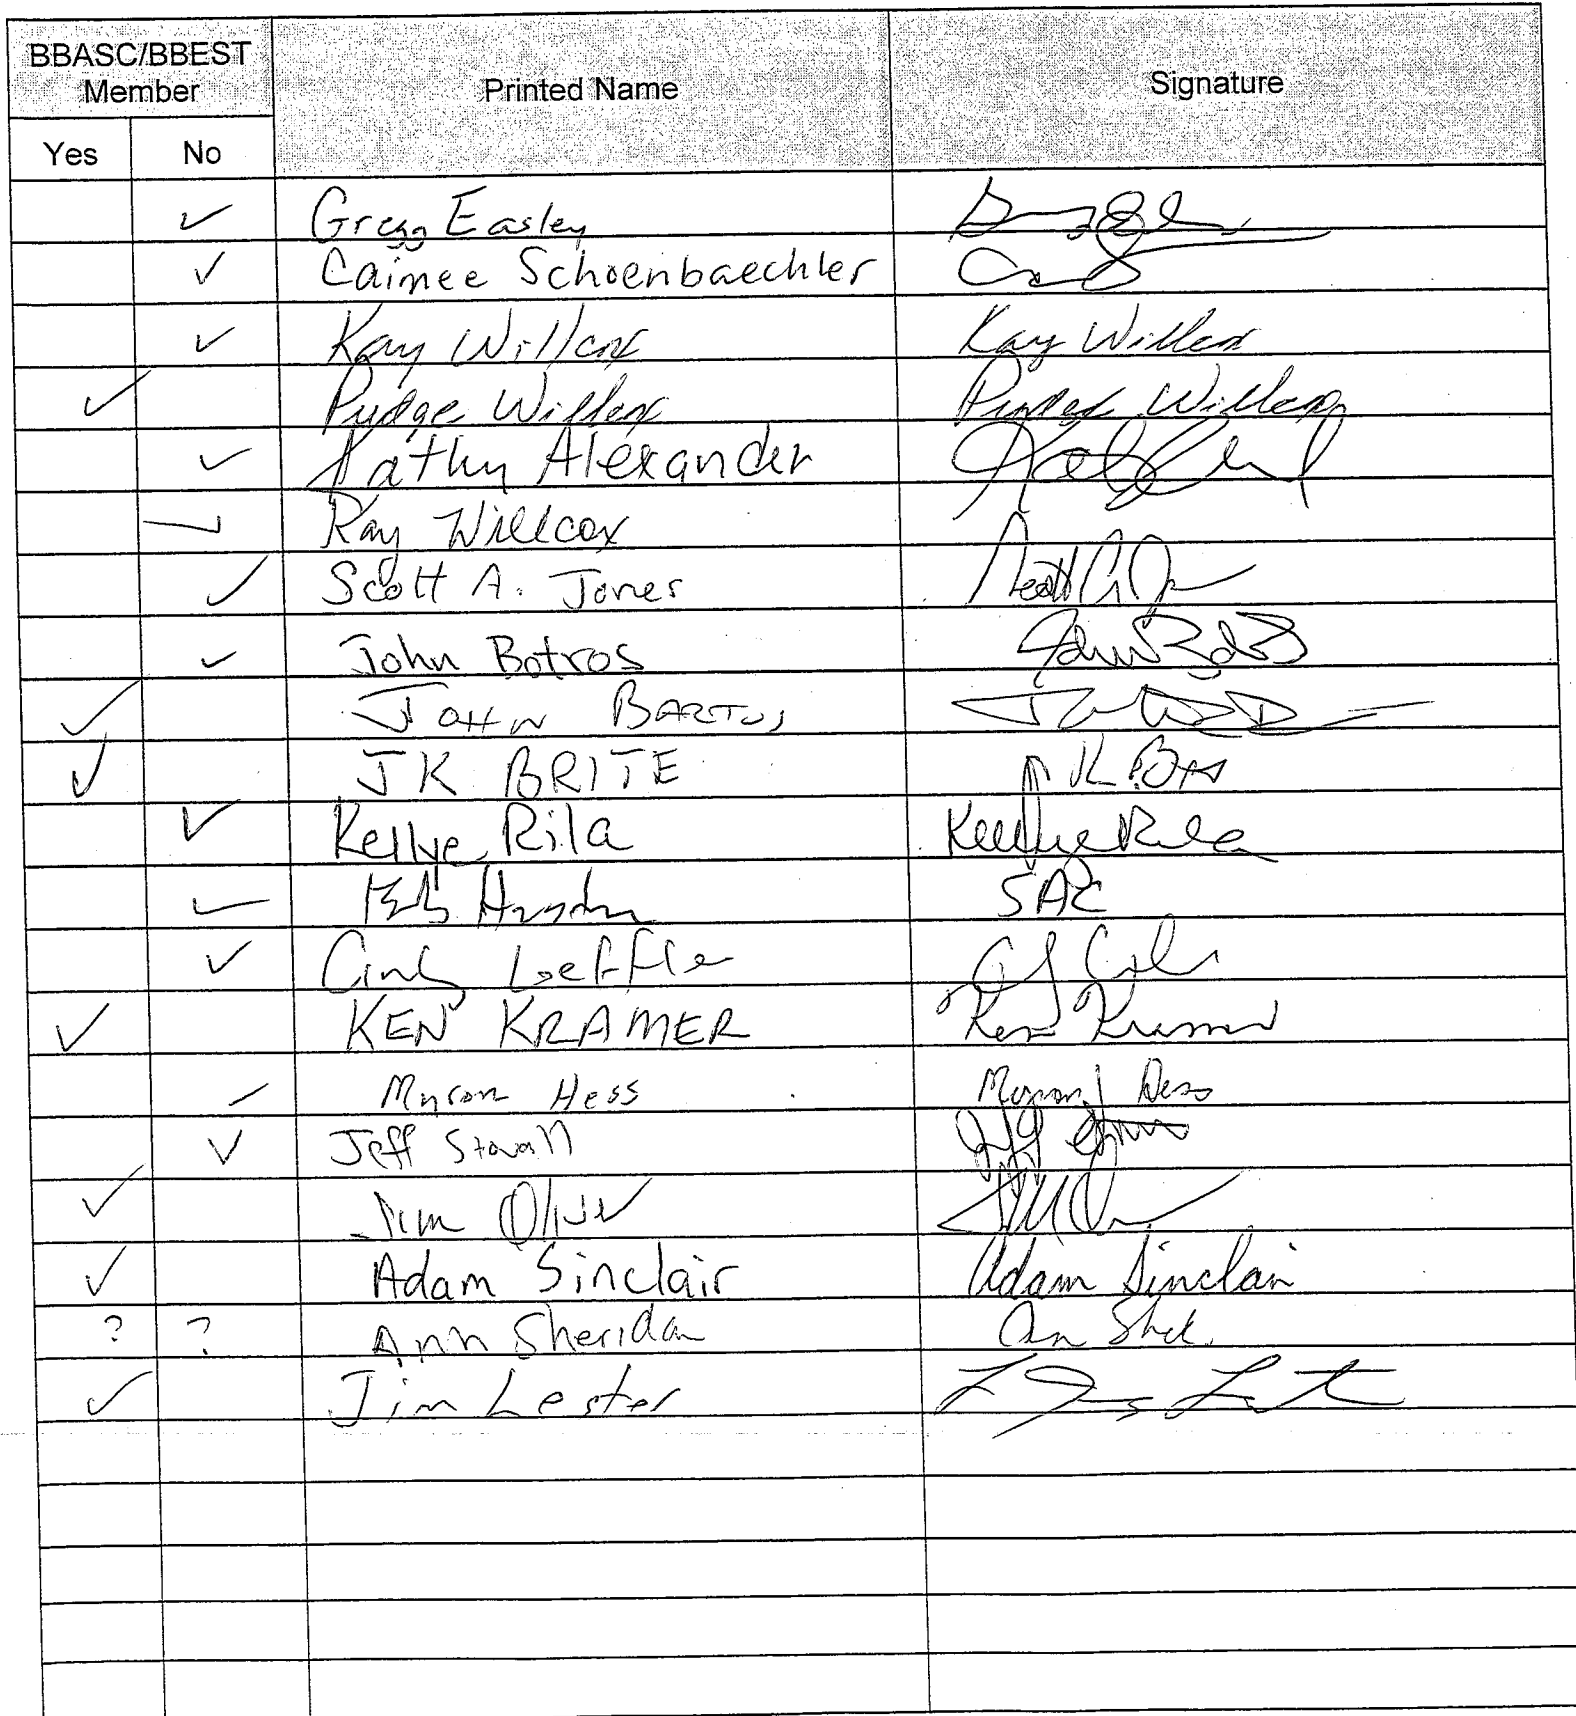 BBASC/BBEST Member Printed Name Signature
Yes No
✓ Gregg Easley
✓ Caimee Schoenbaechler
✓ Kay Willcox Kay Willcox
✓ Pudge Willcox Pudge Willcox
✓ Kathy Alexander
✓ Ray Willcox
✓ Scott A. Jones Scott A Jones
✓ John Botros John Botros
✓ JOHN BARTOS
✓ JK BRITE JK Brite
✓ Kellye Rila Kellye Rila
✓ SAC
✓ Cindy Loeffler
✓ KEN KRAMER Ken Kramer
✓ Myron Hess Myron Hess
✓ Jeff Stovall
✓ Jim Oliver
✓ Adam Sinclair Adam Sinclair
? ? Ann Sheridan
✓ Jim Lester